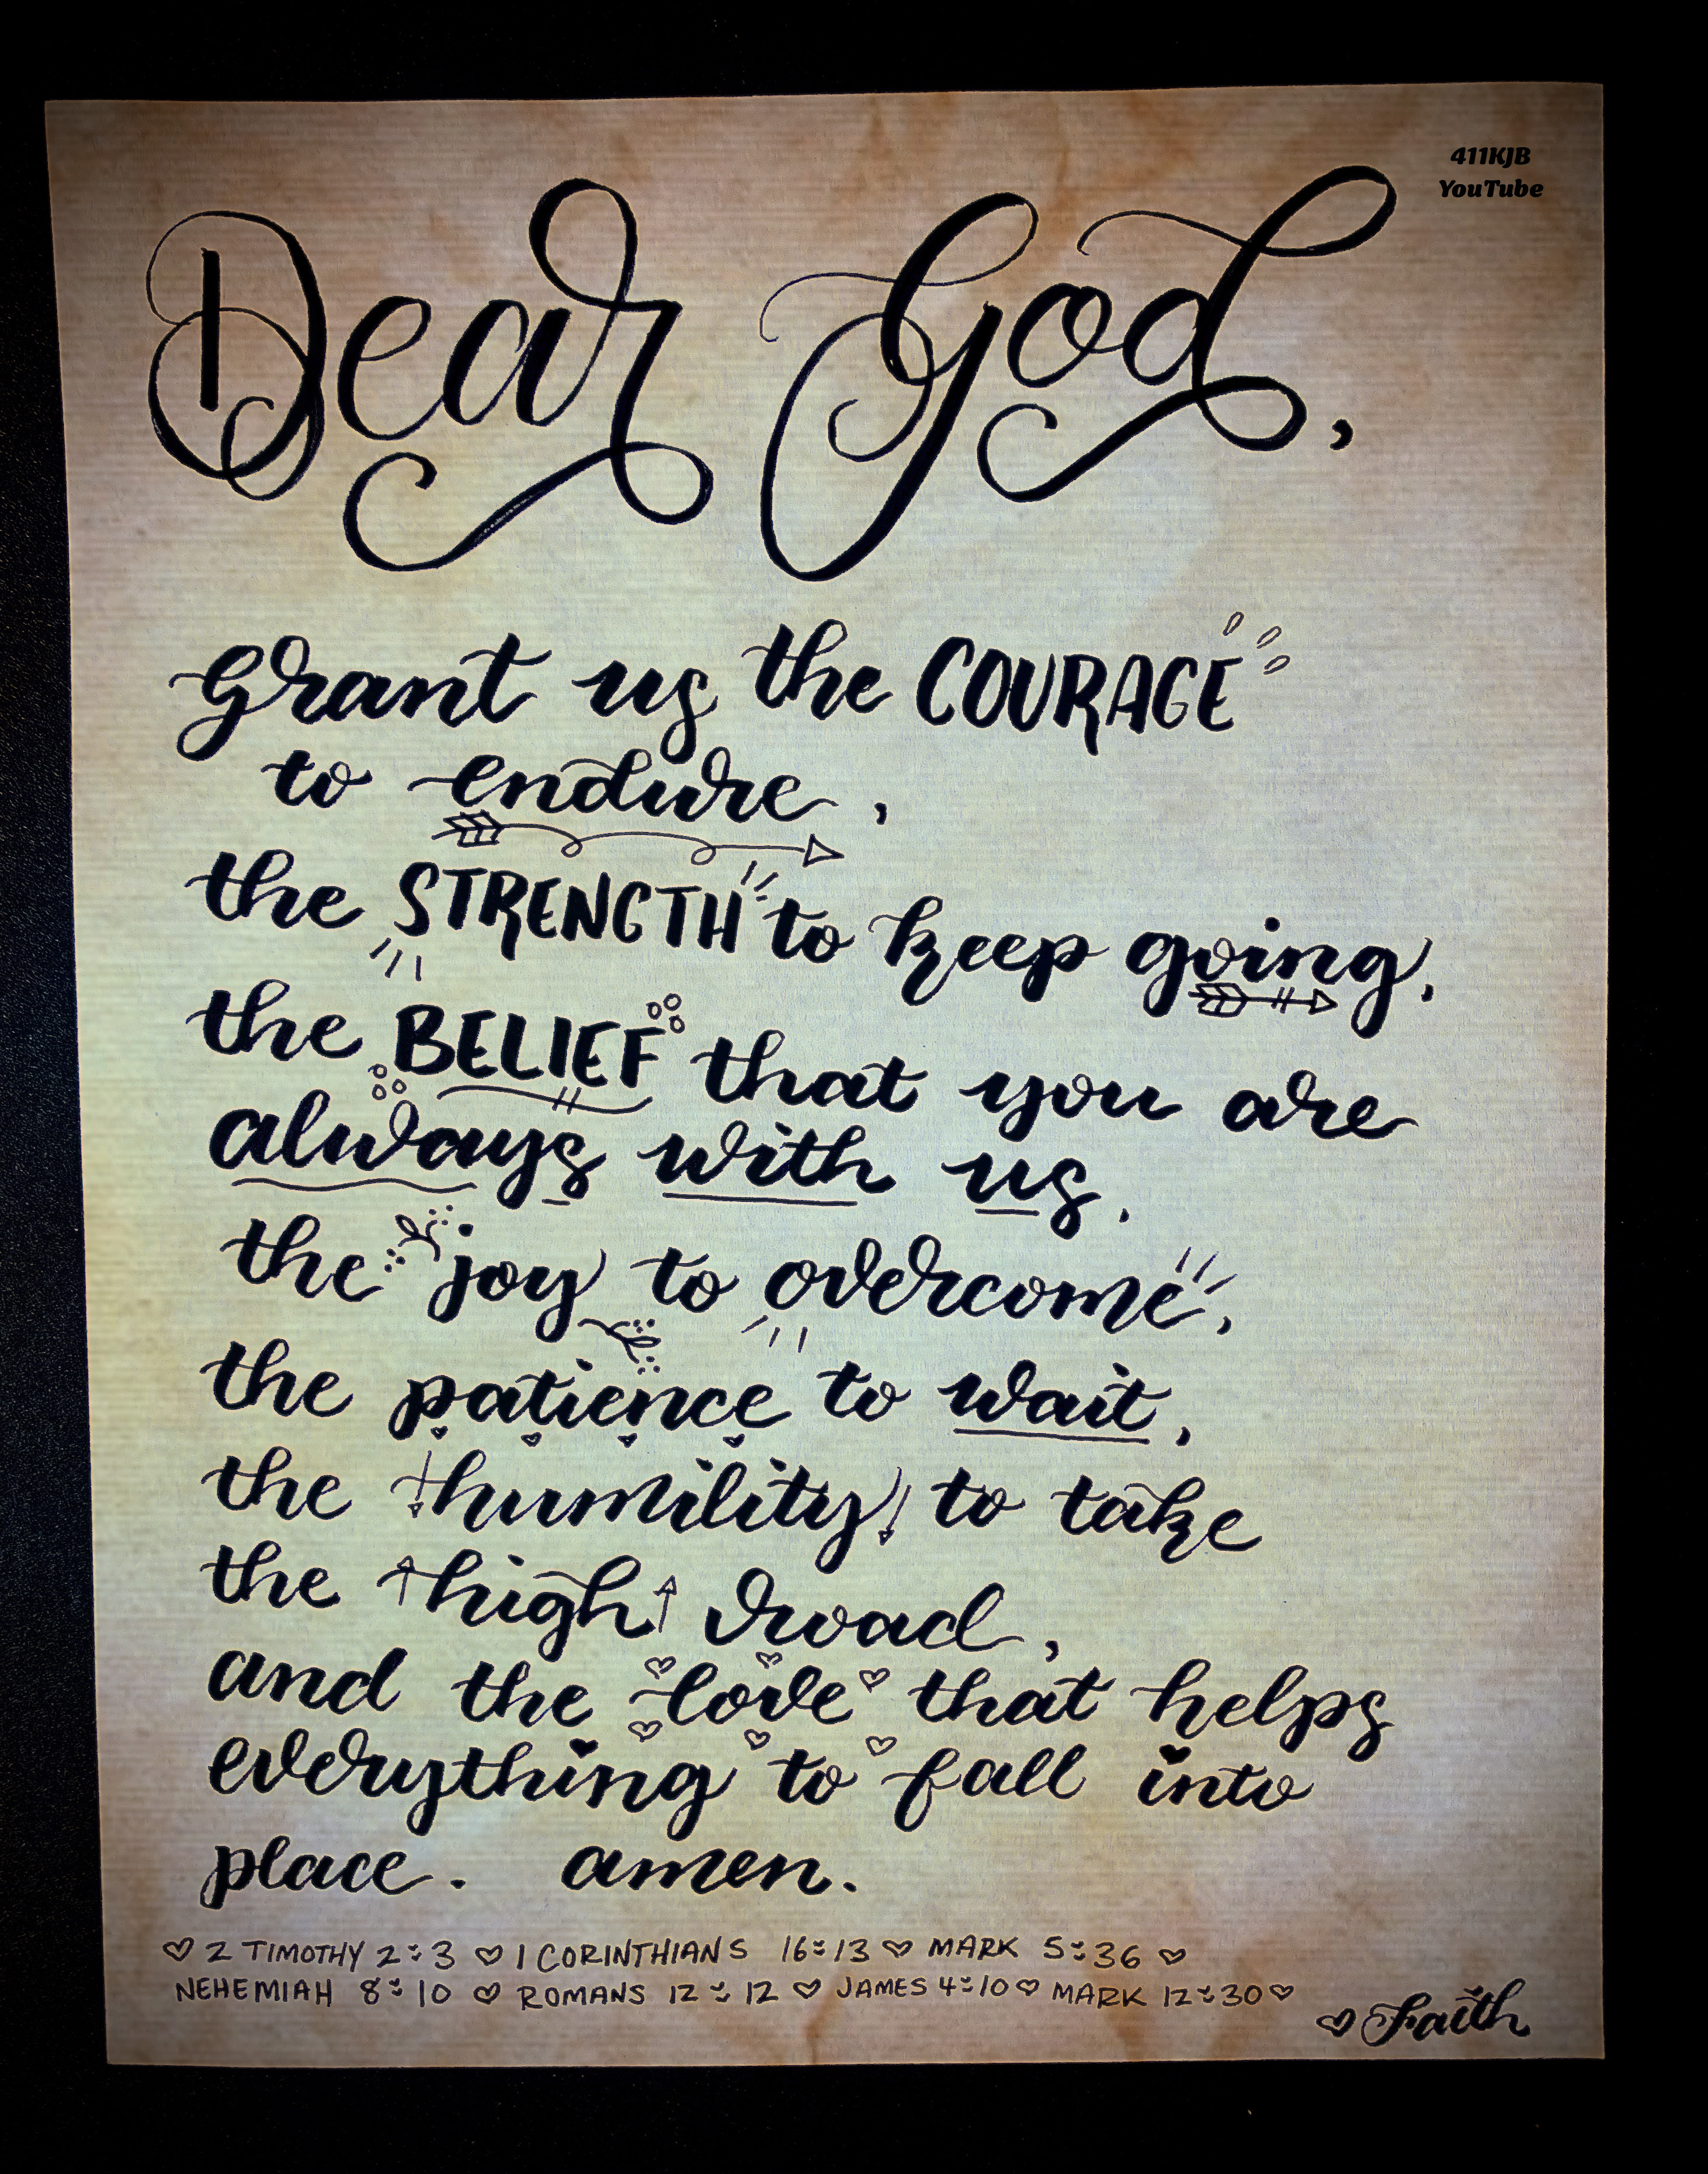 411KJB
YouTube
Dear God,
grant us the COURAGE
to endure,
the STRENGTH to keep going,
the BELIEF that you are
always with us,
the joy to overcome,
the patience to wait,
the humility to take
the high road,
and the love that helps
everything to fall into
place. amen.
♡ 2 TIMOTHY 2:3 ♡ 1 CORINTHIANS 16:13 ♡ MARK 5:36 ♡
NEHEMIAH 8:10 ♡ ROMANS 12:12 ♡ JAMES 4:10 ♡ MARK 12:30 ♡
♡ Faith